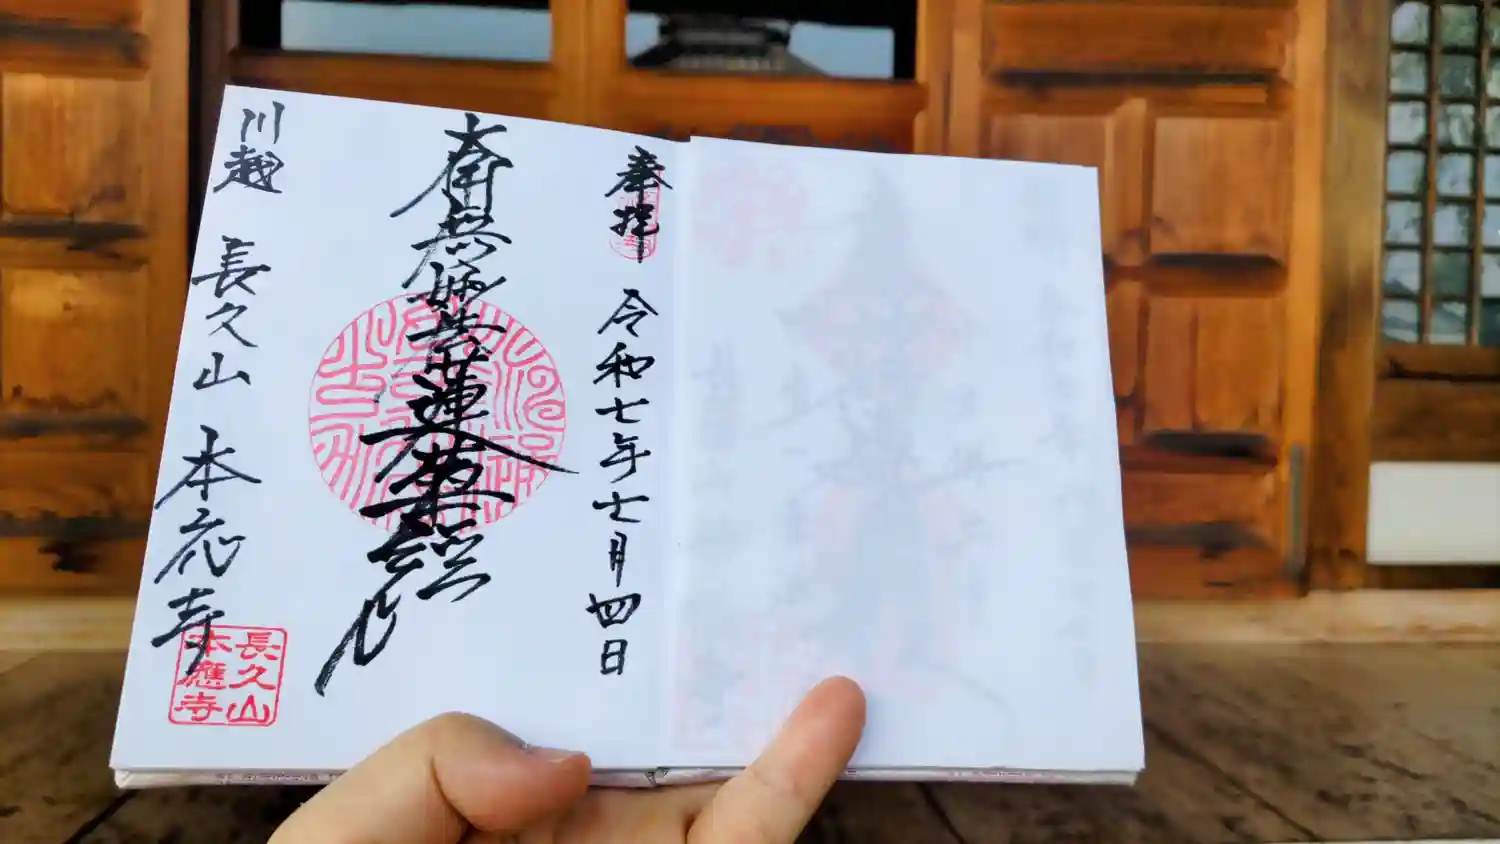 奉拝 令和七年七月四日
南無妙法蓮華経
川越 長久山 本応寺
長久山
本應寺